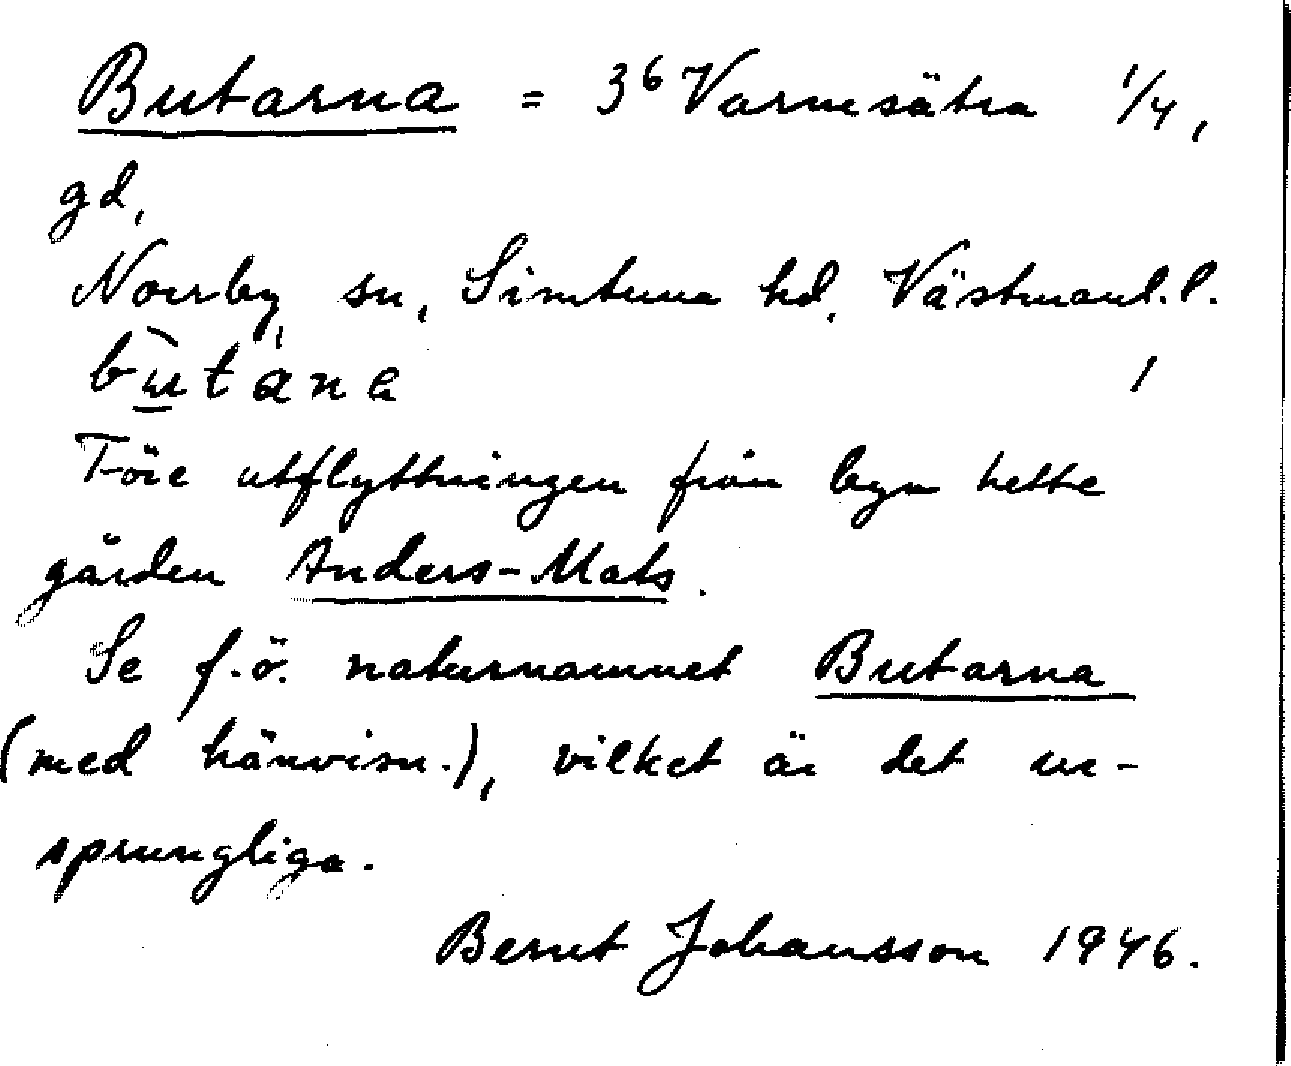 Butarna = 3⁶ Varmsätra 1/4,
gd,
Norrby sn, Simtuna hd, Västmanl. l.
bu̲tána /
Före utflyttningen från byn hette
gården Anders-Mats.
Se f.ö. naturnamnet Butarna
(med hänvisn.), vilket är det ur-
sprungliga.
Bernt Johansson 1946.